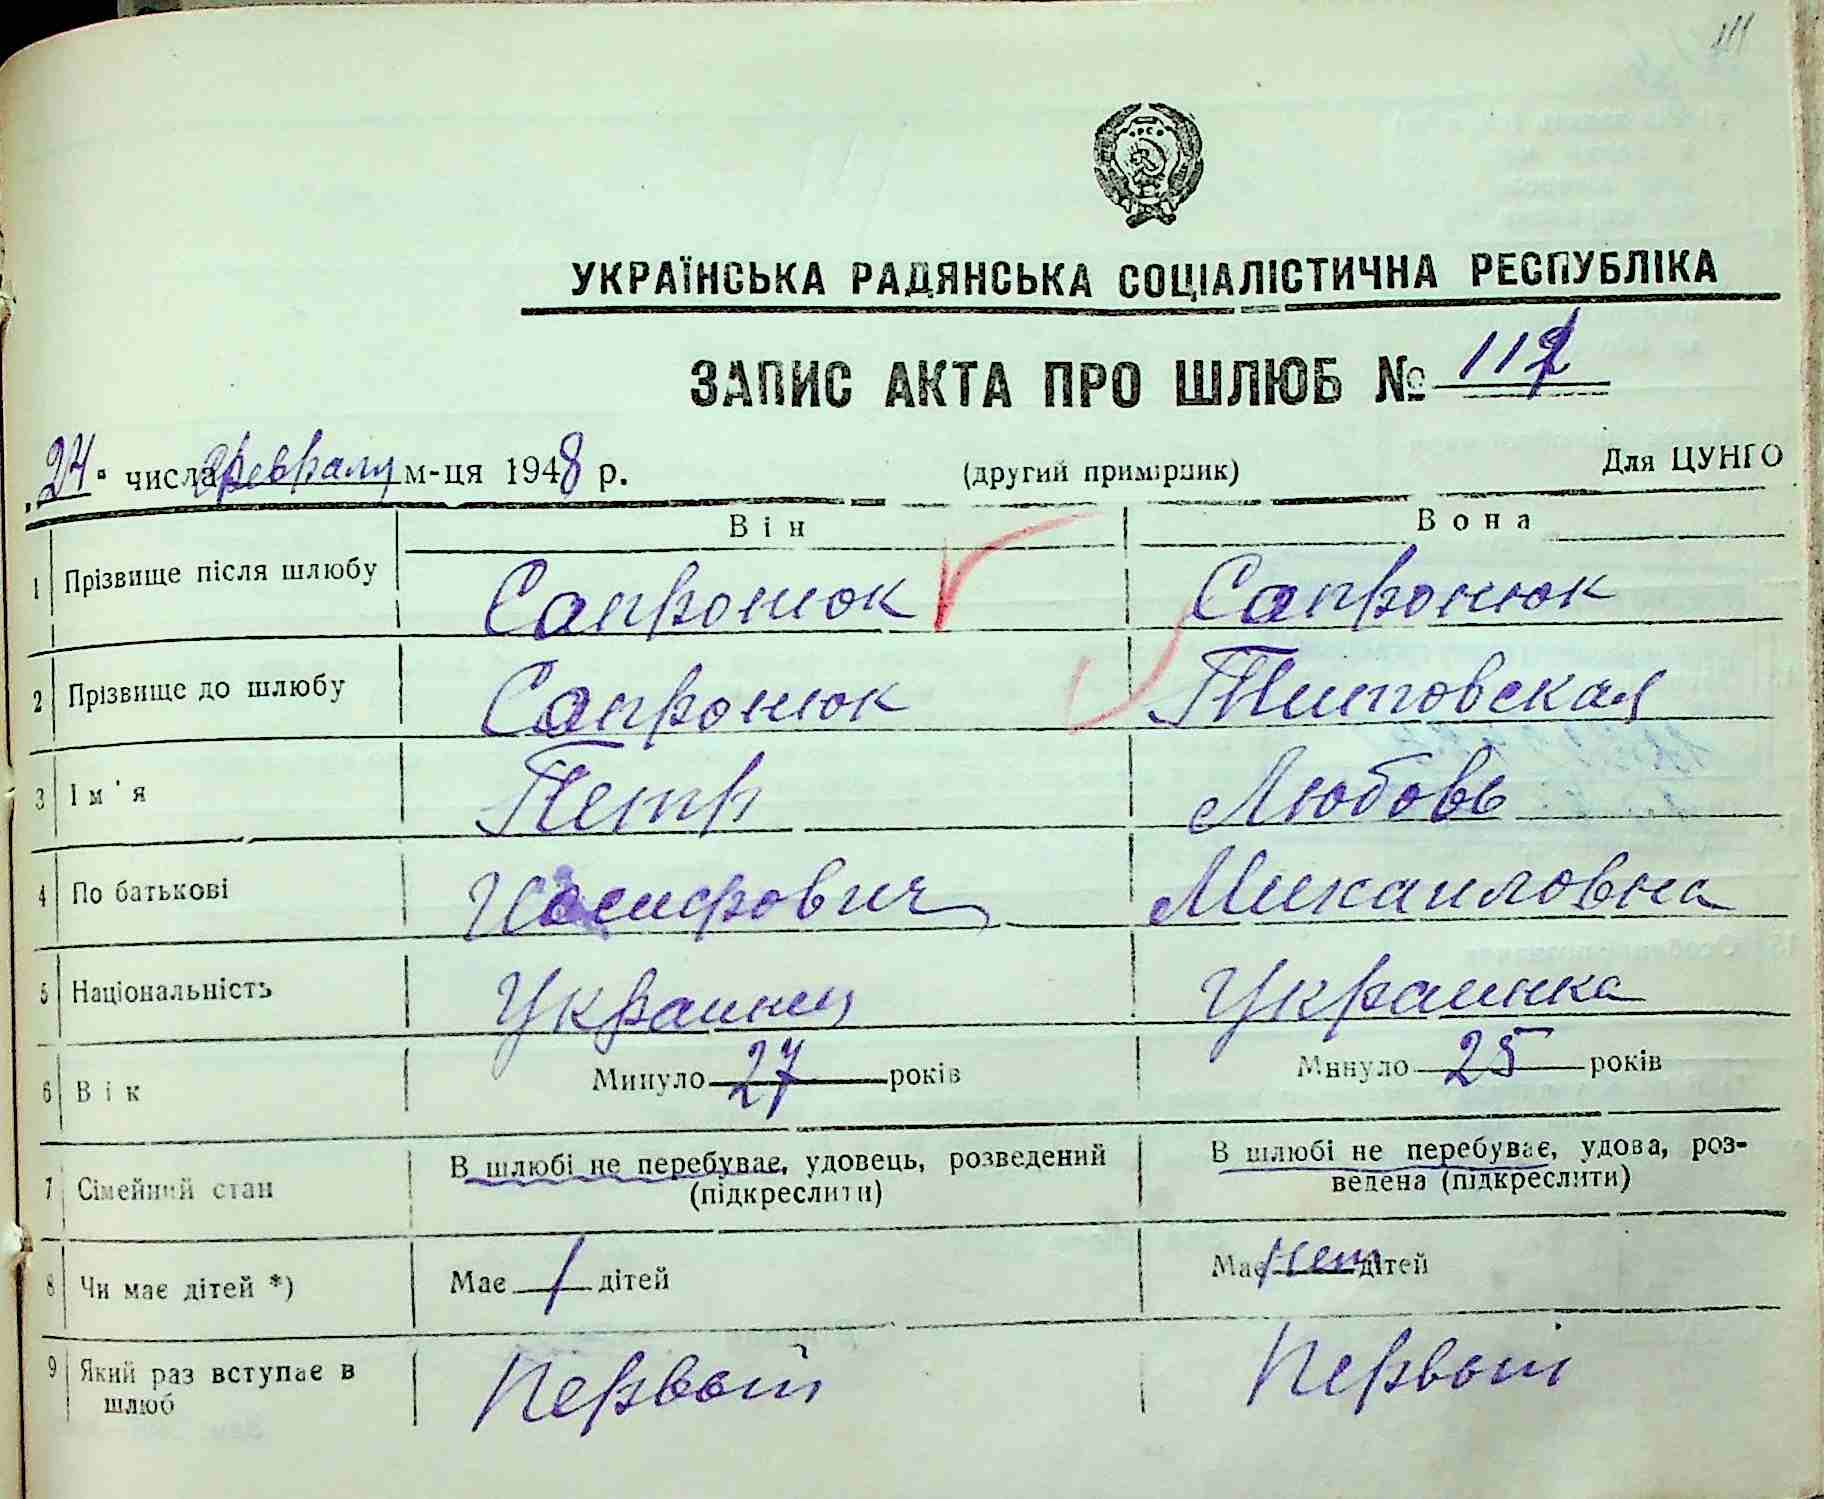 111
УКРАЇНСЬКА РАДЯНСЬКА СОЦІАЛІСТИЧНА РЕСПУБЛІКА
ЗАПИС АКТА ПРО ШЛЮБ № 112
"24" числа февраля м-ця 1948 р. (другий примірник) Для ЦУНГО
Він Вона
1 Прізвище після шлюбу Сапронюк Сапронюк
2 Прізвище до шлюбу Сапронюк Типовская
3 Ім'я Петр Любовь
4 По батькові Иосифович Михаиловна
5 Національність Украинец Украинка
6 Вік Минуло 27 років Минуло 25 років
7 Сімейний стан В шлюбі не перебуває, удовець, розведений В шлюбі не перебуває, удова, роз-
(підкреслити) ведена (підкреслити)
8 Чи має дітей *) Має 1 дітей Має нет дітей
9 Який раз вступає в Первый Первый
шлюб